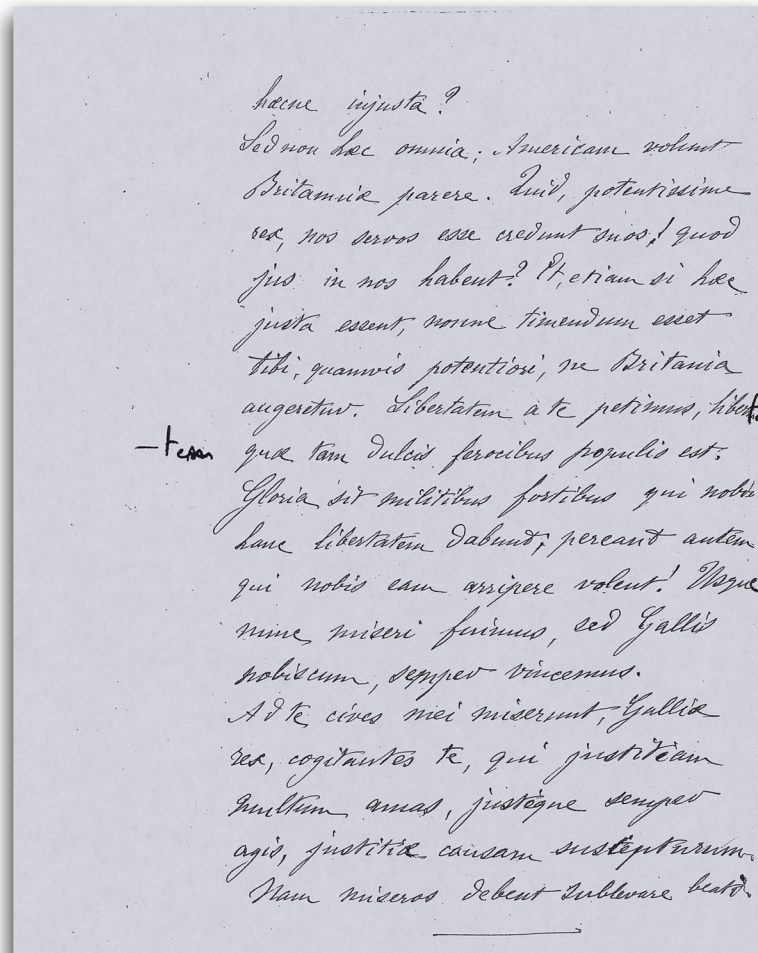 hæcne injusta?
Sed non hæc omnia; Americam volunt
Britanniæ parere. Quid, potentissime
rex, nos servos esse credunt suos! quod
jus in nos habent? Et, etiam si hæc
justa essent, nonne timendum esset
tibi, quamvis potentiori, ne Britania
augeretur. Libertatem a te petimus, liberta
-tem quæ tam dulcis ferocibus populis est.
Gloria sit militibus fortibus qui nobis
hanc libertatem dabunt; pereant autem
qui nobis eam arripere volent! Usque
nunc miseri fuimus, sed Gallis
nobiscum, semper vincemus.
Ad te cives mei miserunt, Galliæ
rex, cogitantes te, qui justitiam
multum amas, justèque semper
agis, justitiæ causam suscepturum.
Nam miseros debent sublevare beati.